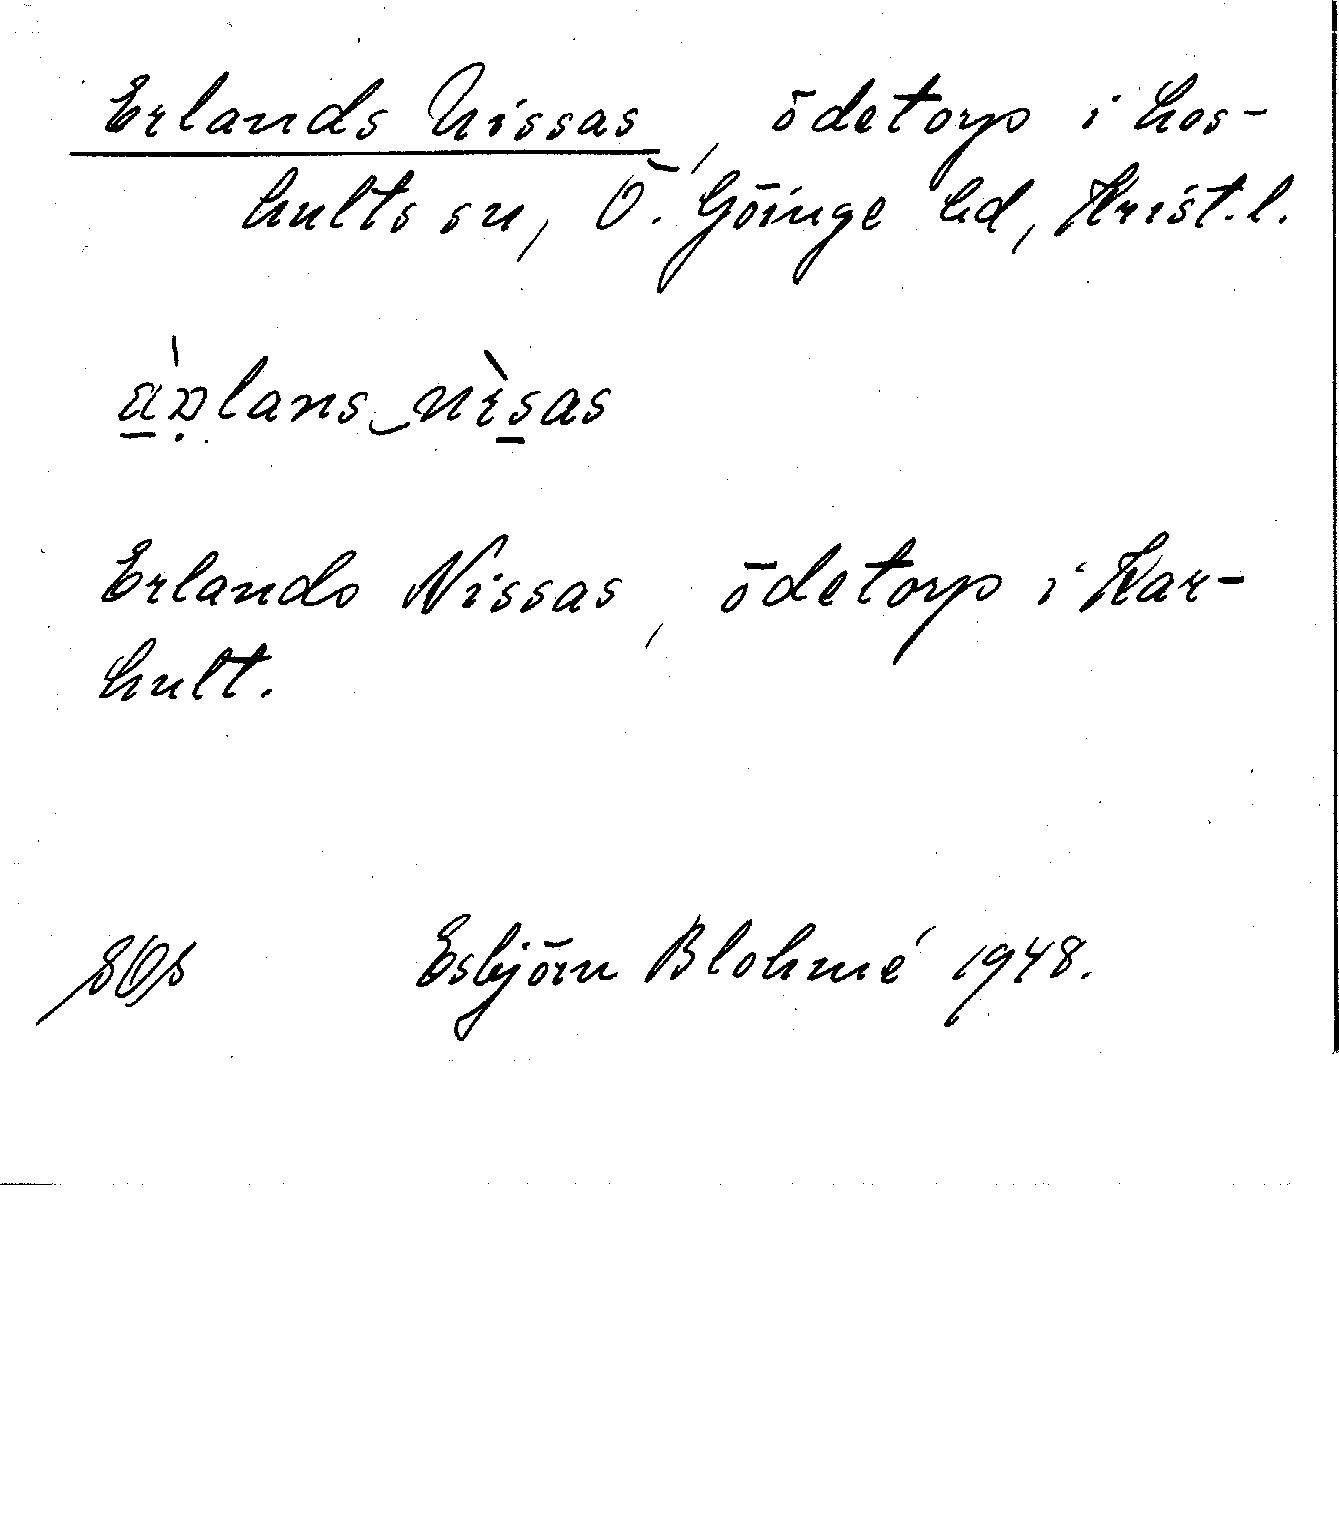 Erlands Nissas, ödetorp i Los-
hults sn, Ö. Göinge hd, Krist.l.
Erlands Nissas, ödetorp i Kar-
hult.
Esbjörn Blohmé 1948.